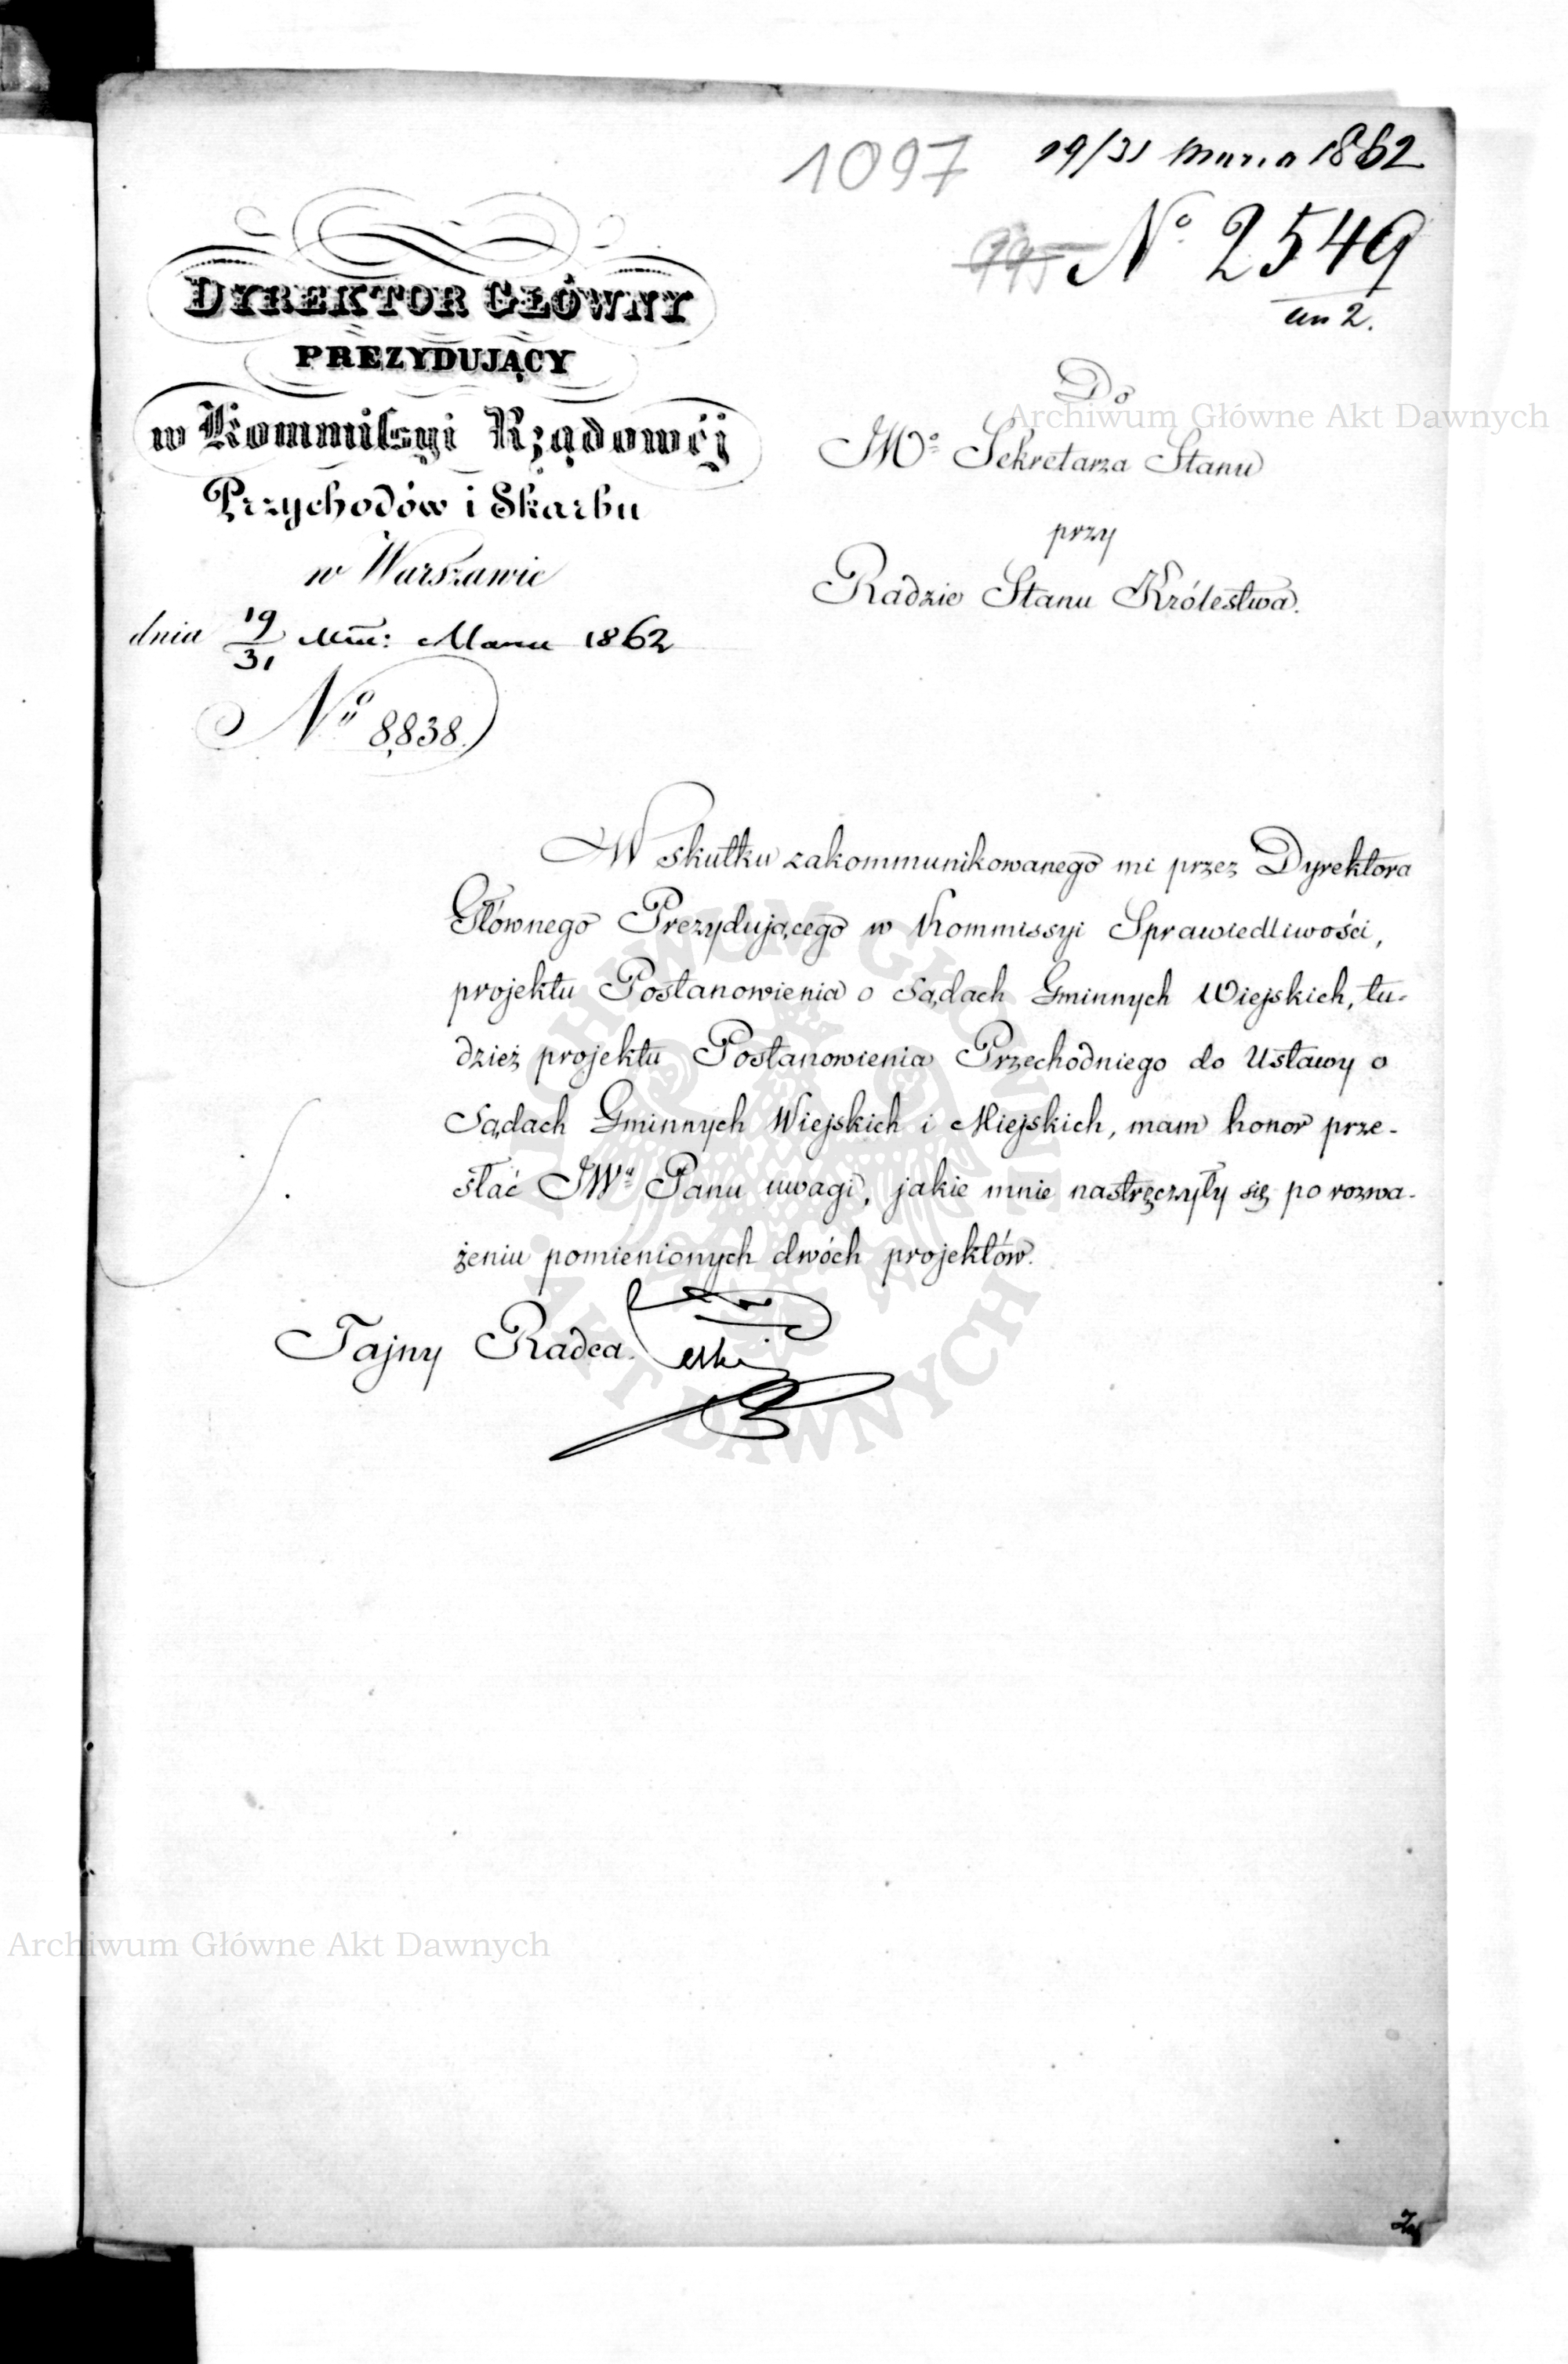 1097
19/31 Marca 1862
No 2549
an 2.
DYREKTOR GŁÓWNY
PREZYDUJĄCY
w Kommissyi Rządowéj
Przychodów i Skarbu
w Warszawie
dnia 19/31 Marca 1862
No 8,838.
Do
JWo Sekretarza Stanu
przy
Radzie Stanu Królestwa.
W skutku zakommunikowanego mi przez Dyrektora
Głównego Prezydującego w Kommissyi Sprawiedliwości,
projektu Postanowienia o Sądach Gminnych Wiejskich, tu-
dzież projektu Postanowienia Przechodniego do Ustawy o
Sądach Gminnych Wiejskich i Miejskich, mam honor prze-
słać JWu Panu uwagi, jakie mnie nastręczyły się po rozwa-
żeniu pomienionych dwóch projektów.
Tajny Radca
Archiwum Główne Akt Dawnych
ARCHIWUM GŁÓWNE AKT DAWNYCH
Archiwum Główne Akt Dawnych